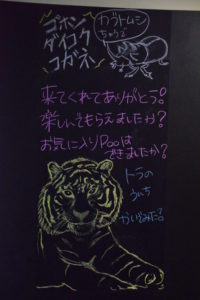 ゴホン
ダイコク
コガネ
カブトムシ
ちゃうで
来てくれてありがとう!
楽しんでもらえましたか?
お気に入りPooは
できましたか?
トラの
うんち
かいでみた?